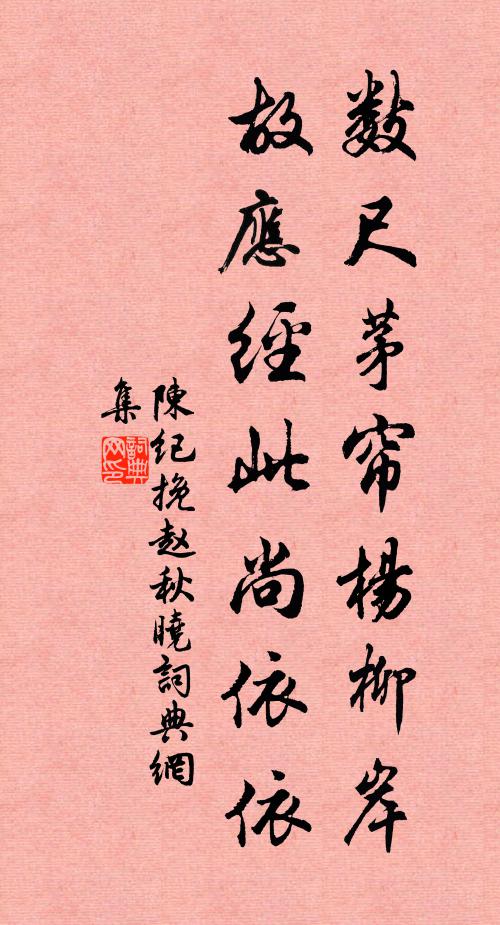 数尺茅帘楊柳岸
故應經此尚依依
陳紀挽赵秋曉詞典網
集
詞典网印